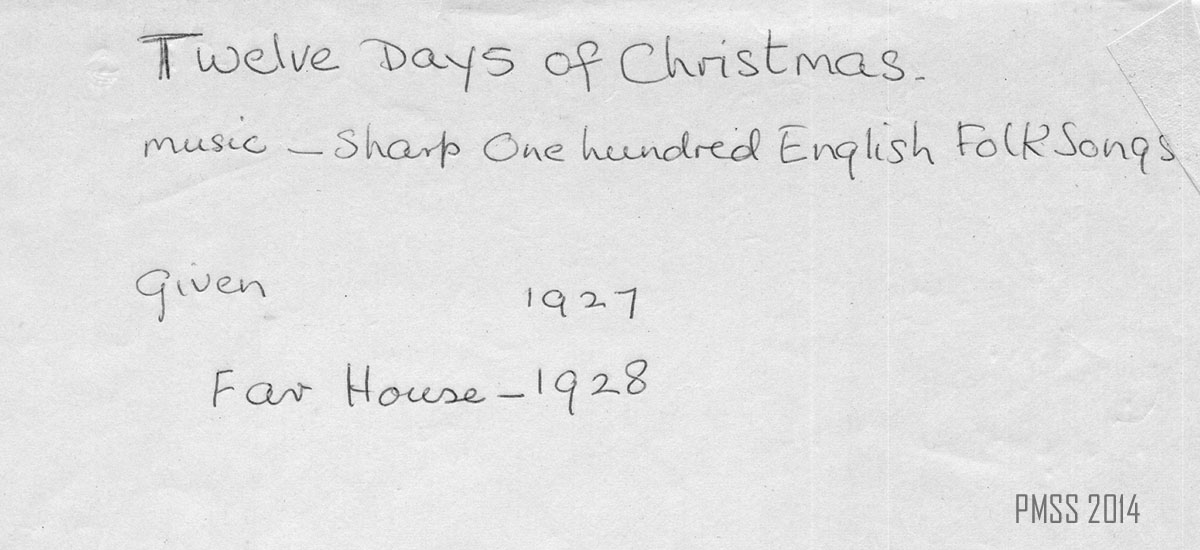 Twelve Days of Christmas.
music – Sharp One hundred English Folk Songs
Given 1927
Far House – 1928
PMSS 2014